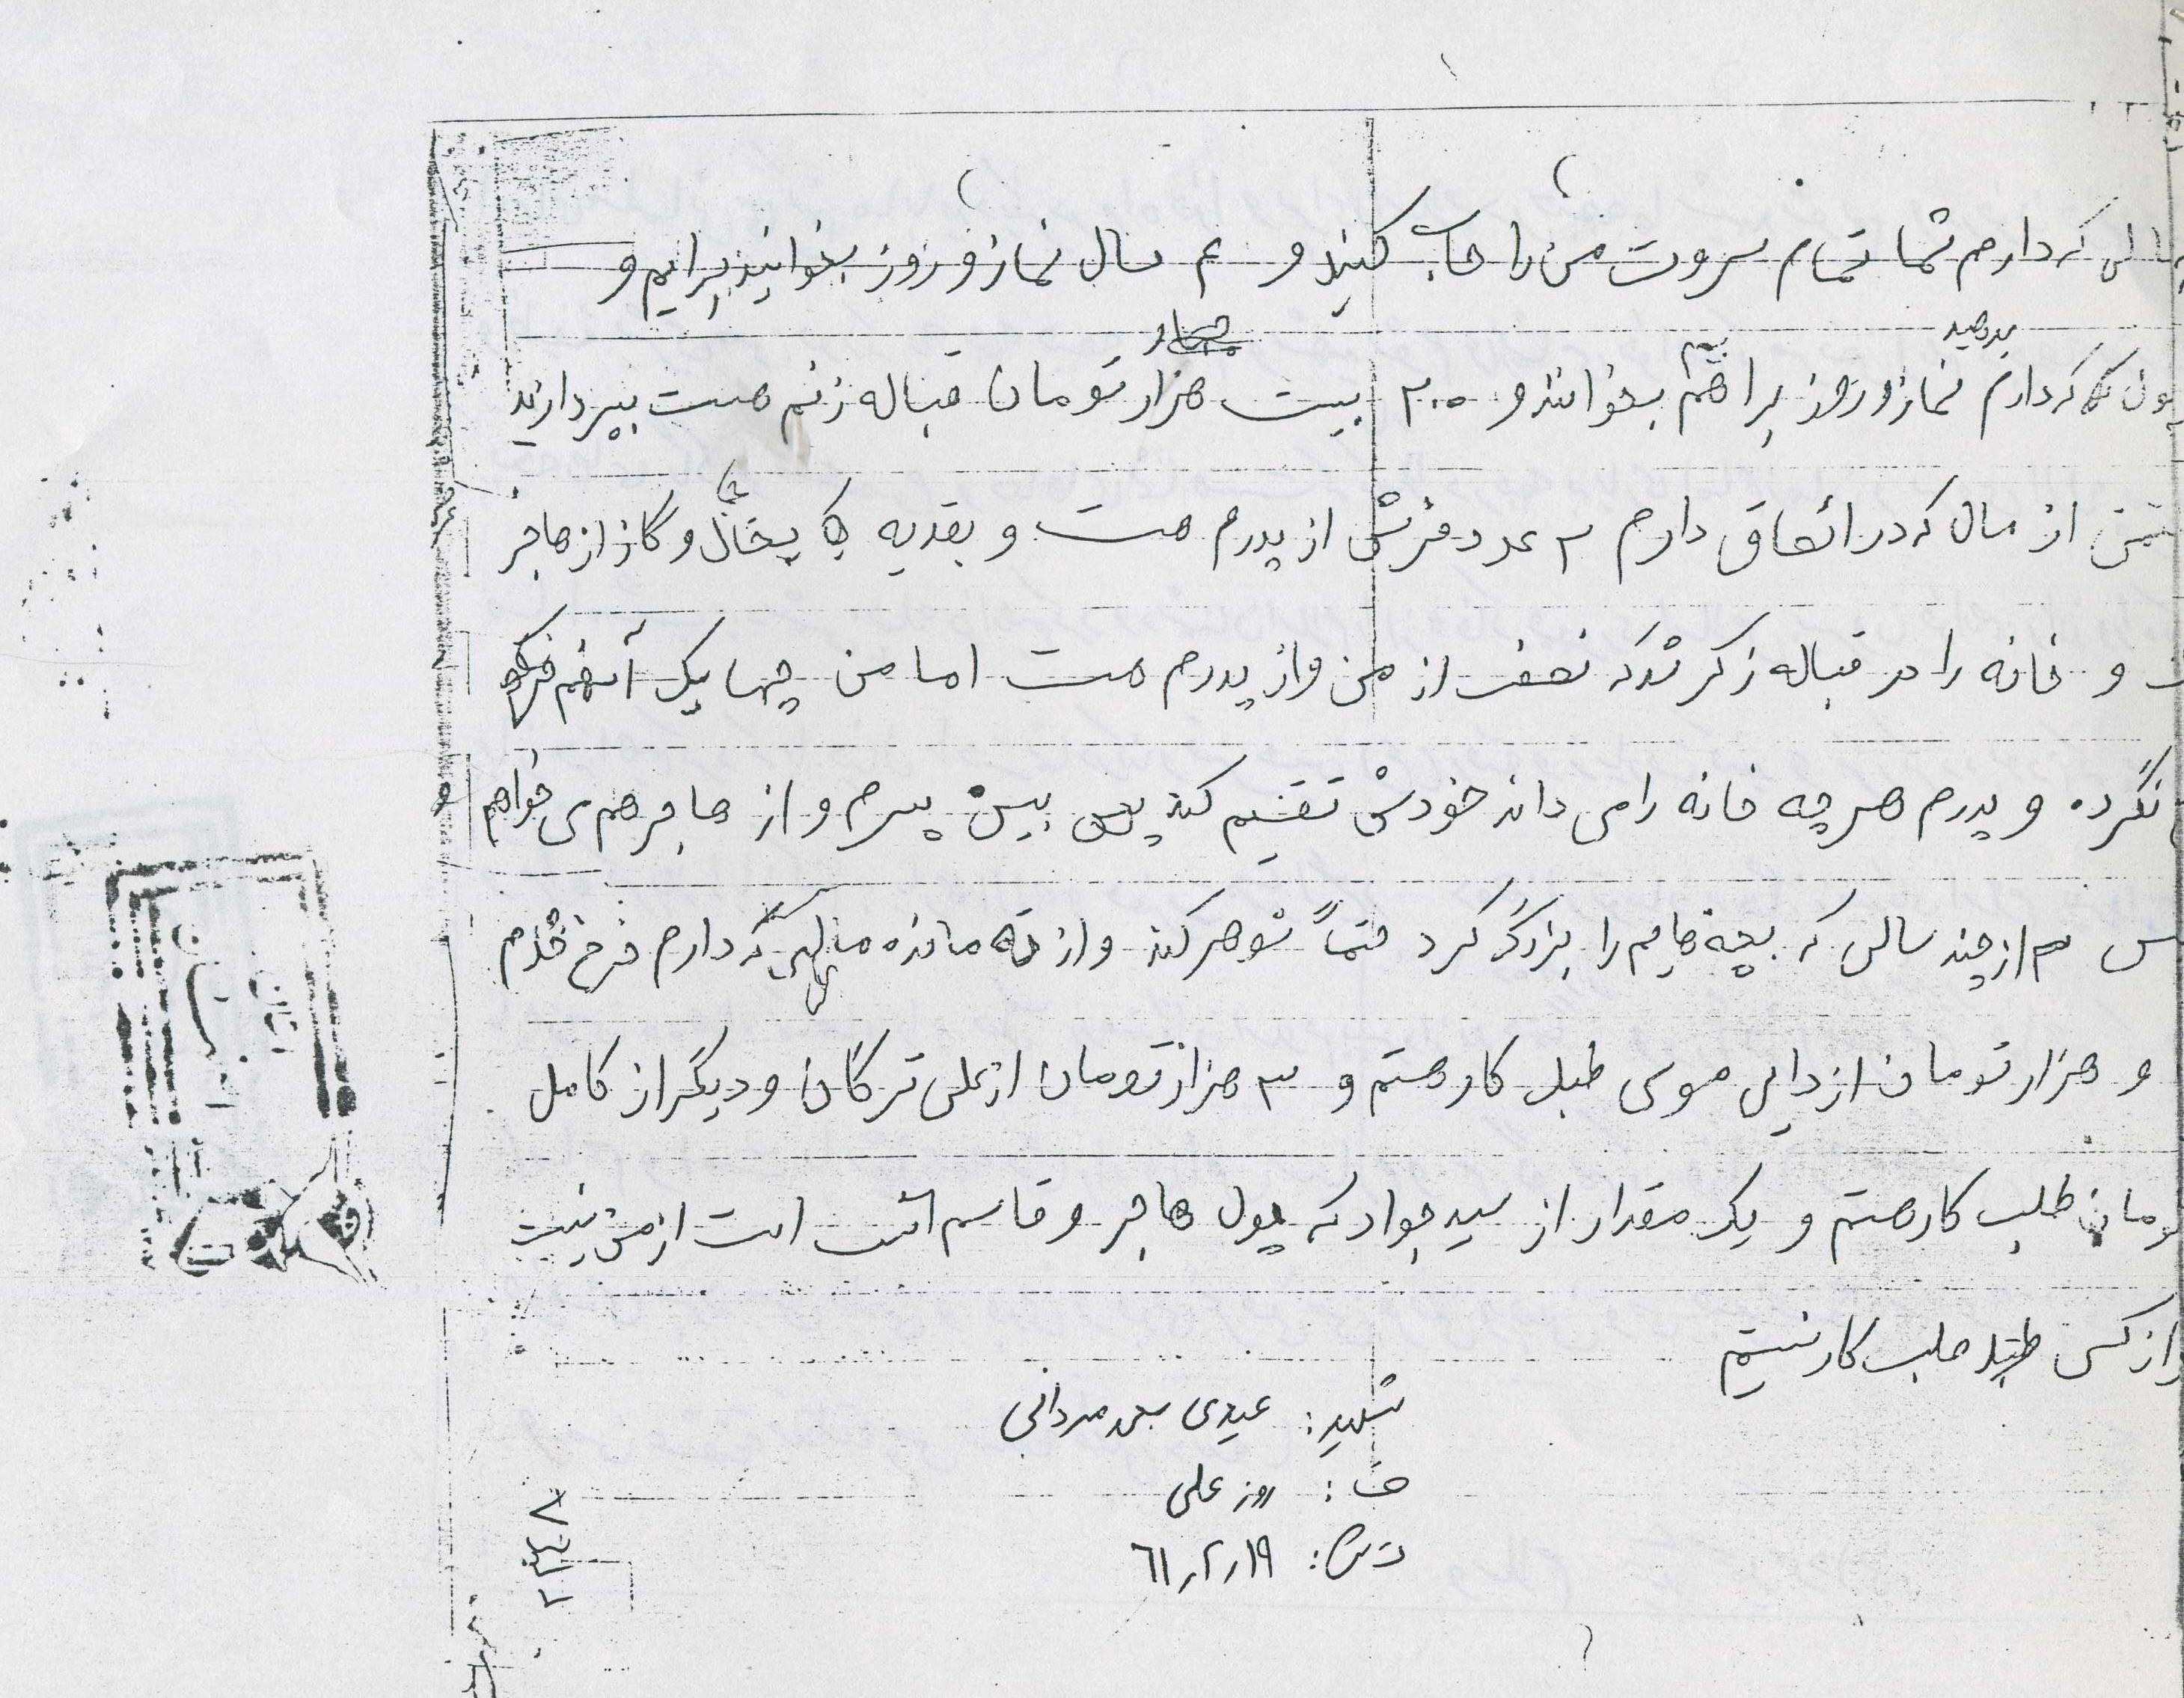 لی که دارم شما تمام سروت من را حساب کنید و ۴ سال نماز و روز بخوانید برایم و
چهار
بدهید
که دارم نماز و روز براهم بخوانند و ۲۰۰ بیست هزار تومان قباله زنم هست بپردازید
از مال که در اتعاق دارم ۲ عدد فرش از پدرم هست و بقدیه یخچال و گاز از هاجر
و خانه را در قباله زکر شد که نصف از من و از پدرم هست اما من چهار یک آنهم
نکرده و پدرم هر چه خانه را می داند خودش تقسیم کند بین پسرم و از هاجر هم می خواهم
از چند سالی که بچه هایم را بزرگ کرد حتماً شوهر کند و از ته مانده مالی که دارم خرج
و هزار تومان از دایی موسی طبل کار هستم و ۳ هزار تومان از علی ترکان و دیگر از کامل
تومان طلب کار هستم و یک مقدار از سید جواد که پول هاجر و قاسم است از من نیست
از کسی طلب کار نیستم
شهید: عیدی مردانی
ف: روز علی
ت ش: ۶۱٫۲٫۱۹